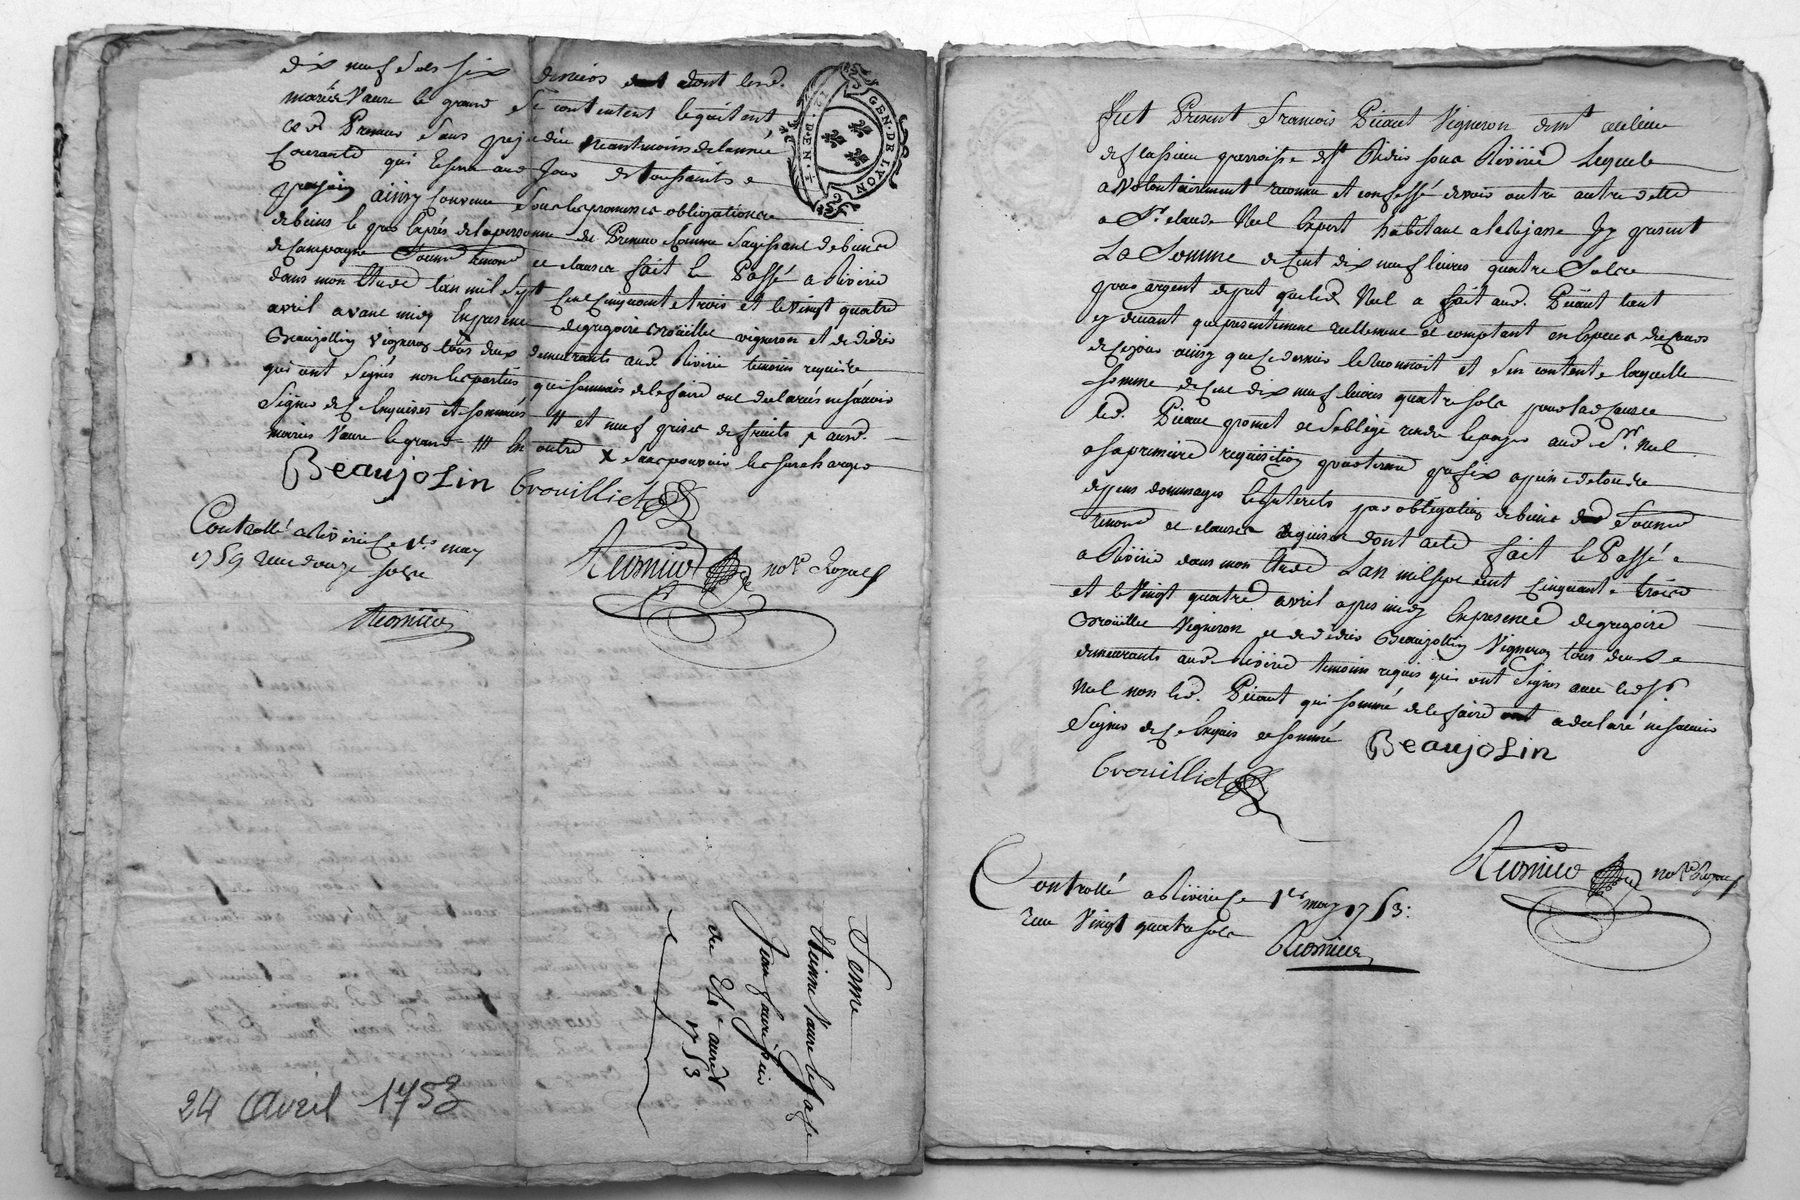 dix neuf sols six deniers dont lesd.
mariés Vaure le grand se contentent le quittent
led Premier sans prejudice neantmoins de lannée
courante qui Echera aud Jour de toussaints
prochain ainsy convenu sous les promesses obligation de
de biens le
de campagne Soumd renond et clauses fait et Passé a Riverie
dans mon Etude lan mil sept Cent Cinquante trois et le Vingt quatre
avril avant midy En presence de gregoire Grouillet vigneron et de didier
Beaujollin Vigneron tous deux demeurants aud Riverie temoins requis
qui ont Signés non les parties qui sommées de le faire ont declarés ne scavoir
Signer de ce Enquises et sommées # et neuf prises de fruits aud.
mariés Vaure le grand # En outre x sans pouvoir les surcharger
Beaujolin Grouilliet
GEN·DE·LYON
Controllé a Riverie ce 1er may
1759 reçu douze sols
no.re Royal
Ferme
Etienne Vaure le
Jean faure
du 24e avril
1753
24 Avril 1753
fut Present François Pitiot Vigneron demt au lieu
de flassieu parroisse de st Didier sous Riverie lequel
a Volontairement reconnu et confessé devoir outre autre dette
a Sr. claude Nel Expert habitant a Icy present
La Somme de Cent dix neuf livres quatre Sols
pour argent de pret que led. Nel a fait aud. Pitiot tant
cy devant que presentement reellement et comptant en Especes de cours
de ce jour ainsy que ce dernier le reconnoit et s'en contente laquelle
somme de Cent dix neuf livres quatre sols pour lad cause
led. Pitiot promet et s'oblige rendre et payer aud. Sr. Nel
a sa premiere requisition a peine de tous
depens dommages et Interets par obligation de biens Soumd
renond et clauses requises dont acte fait et Passé
a Riverie dans mon Etude Lan mil sept cent cinquante trois
et le Vingt quatre avril apres midy En presence de gregoire
Grouillet Vigneron et de didier Beaujollin Vigneron tous deux
demeurants aud. Riverie temoins requis qui ont Signés avec led. Sr.
Nel non led. Pitiot qui sommé de le faire a declaré ne scavoir
Signer de ce Enquis et sommé Beaujolin
Grouilliet
no.re Royal
Controllé a Riverie ce 1er may 1753:
reçu Vingt quatre sols